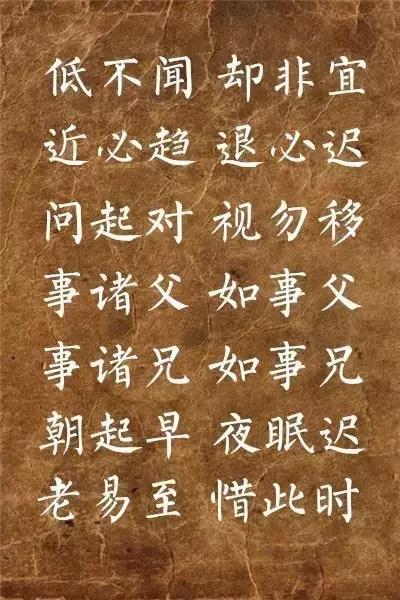 低不闻 却非宜
近必趋 退必迟
问起对 视勿移
事诸父 如事父
事诸兄 如事兄
朝起早 夜眠迟
老易至 惜此时